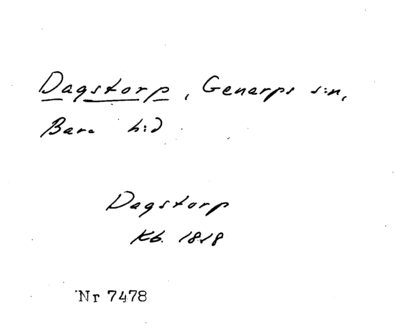 Dagstorp, Genarps s:n,
Bara h:d
Dagstorp
Kb. 1818
Nr 7478